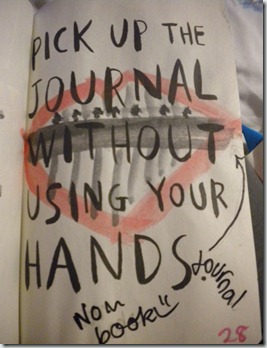 PICK UP THE
JOURNAL
WITHOUT
USING YOUR
HANDS
Journal
Nom
book
28